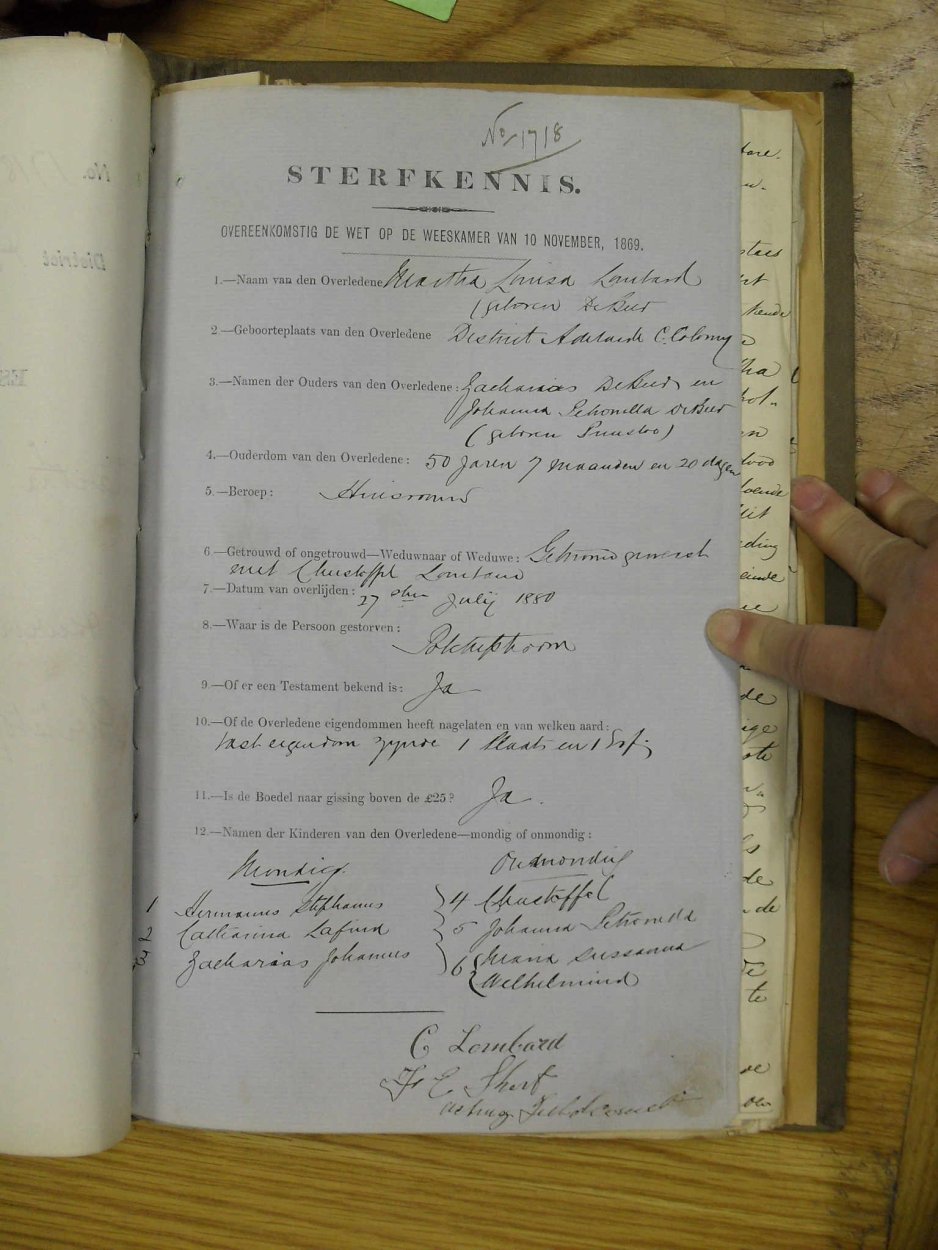 No 1718
STERFKENNIS.
OVEREENKOMSTIG DE WET OP DE WEESKAMER VAN 10 NOVEMBER, 1869.
1.—Naam van den Overledene Martha Louisa Lombard
(geboren De Beer
2.—Geboorteplaats van den Overledene District Adelaide C. Colony
3.—Namen der Ouders van den Overledene: Zacharias De Beer en
Johanna De Beer
(geboren
4.—Ouderdom van den Overledene: 50 Jaren 7 maanden en 20 dagen
5.—Beroep: Huisvrouw
6.—Getrouwd of ongetrouwd—Weduwnaar of Weduwe: Getrouwd geweest
met Christoffel Lombard
7.—Datum van overlijden: 27 sten Julij 1880
8.—Waar is de Persoon gestorven: Potchefstroom
9.—Of er een Testament bekend is: Ja
10.—Of de Overledene eigendommen heeft nagelaten en van welken aard:
Vast eigendom zynde 1 Plaats en 1 Erf
11.—Is de Boedel naar gissing boven de £25? Ja.
12.—Namen der Kinderen van den Overledene—mondig of onmondig:
Mondig. Onmondig
1 Hermanus Stephanus 4 Christoffel
2 Catharina 5 Johanna
3 Zacharias Johannes 6 Maria Sussanna
Wilhelmina
C Lombard
E
acting Feldcornet